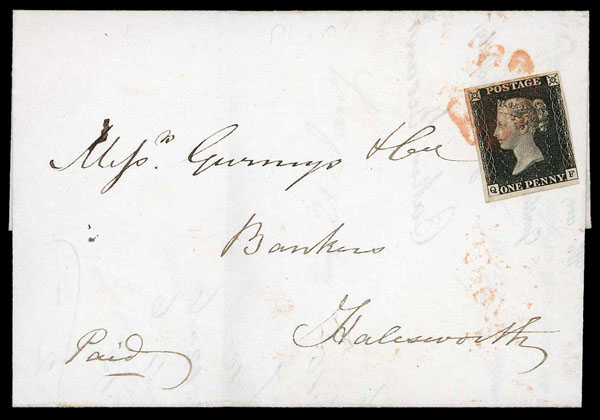 POSTAGE
Q ONE PENNY F
Messrs. Gurneys & Co
Bankers
Halesworth
Paid